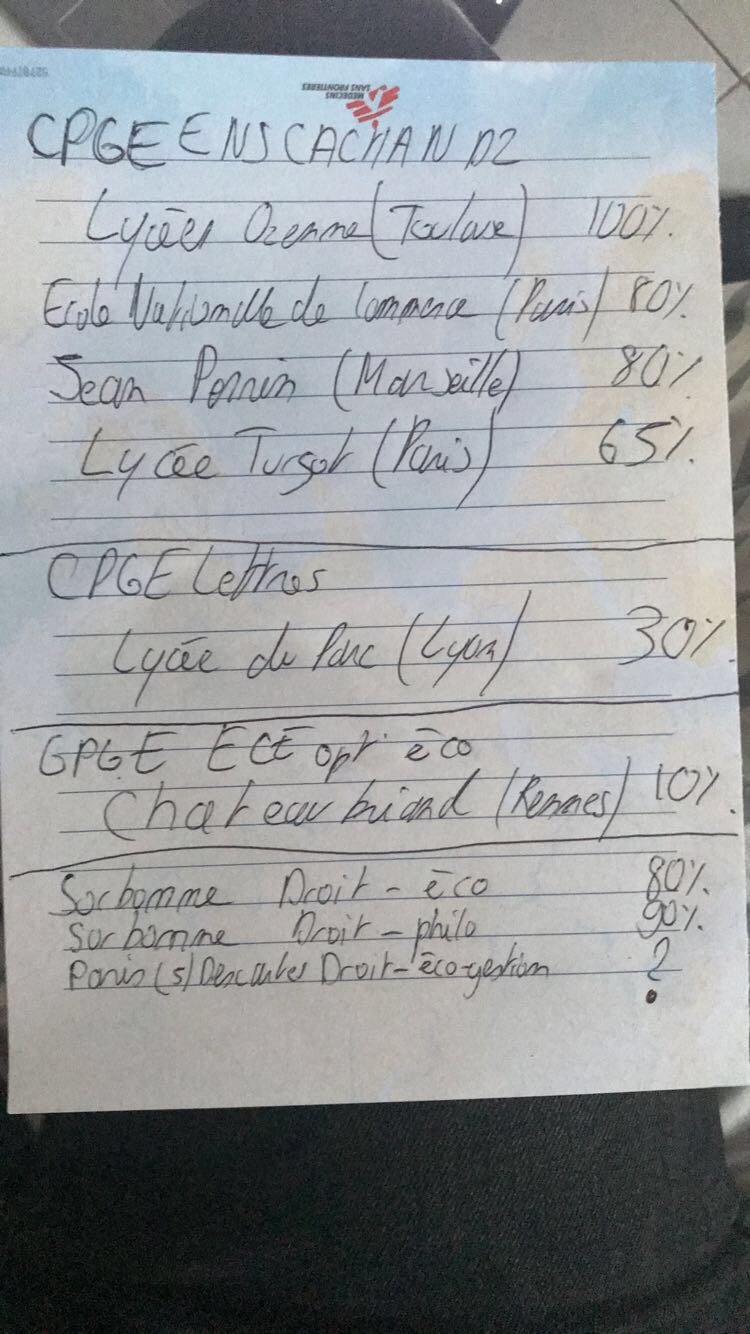 MEDECINS
SANS FRONTIERES
CPGE ENS CACHAN D2
Lycées Ozenne (Toulouse) 100%
Ecole Nationalle de Commerce (Paris) 80%
Jean Perrin (Marseille) 80%
Lycée Turgot (Paris) 65%
CPGE Lettres
Lycée du Parc (Lyon) 30%
CPGE ECE opt° éco
Chateaubriand (Rennes) 10%
Sorbonne Droit-éco 80%
Sorbonne Droit-philo 90%
Paris (5) Descartes Droit-éco-gestion ?